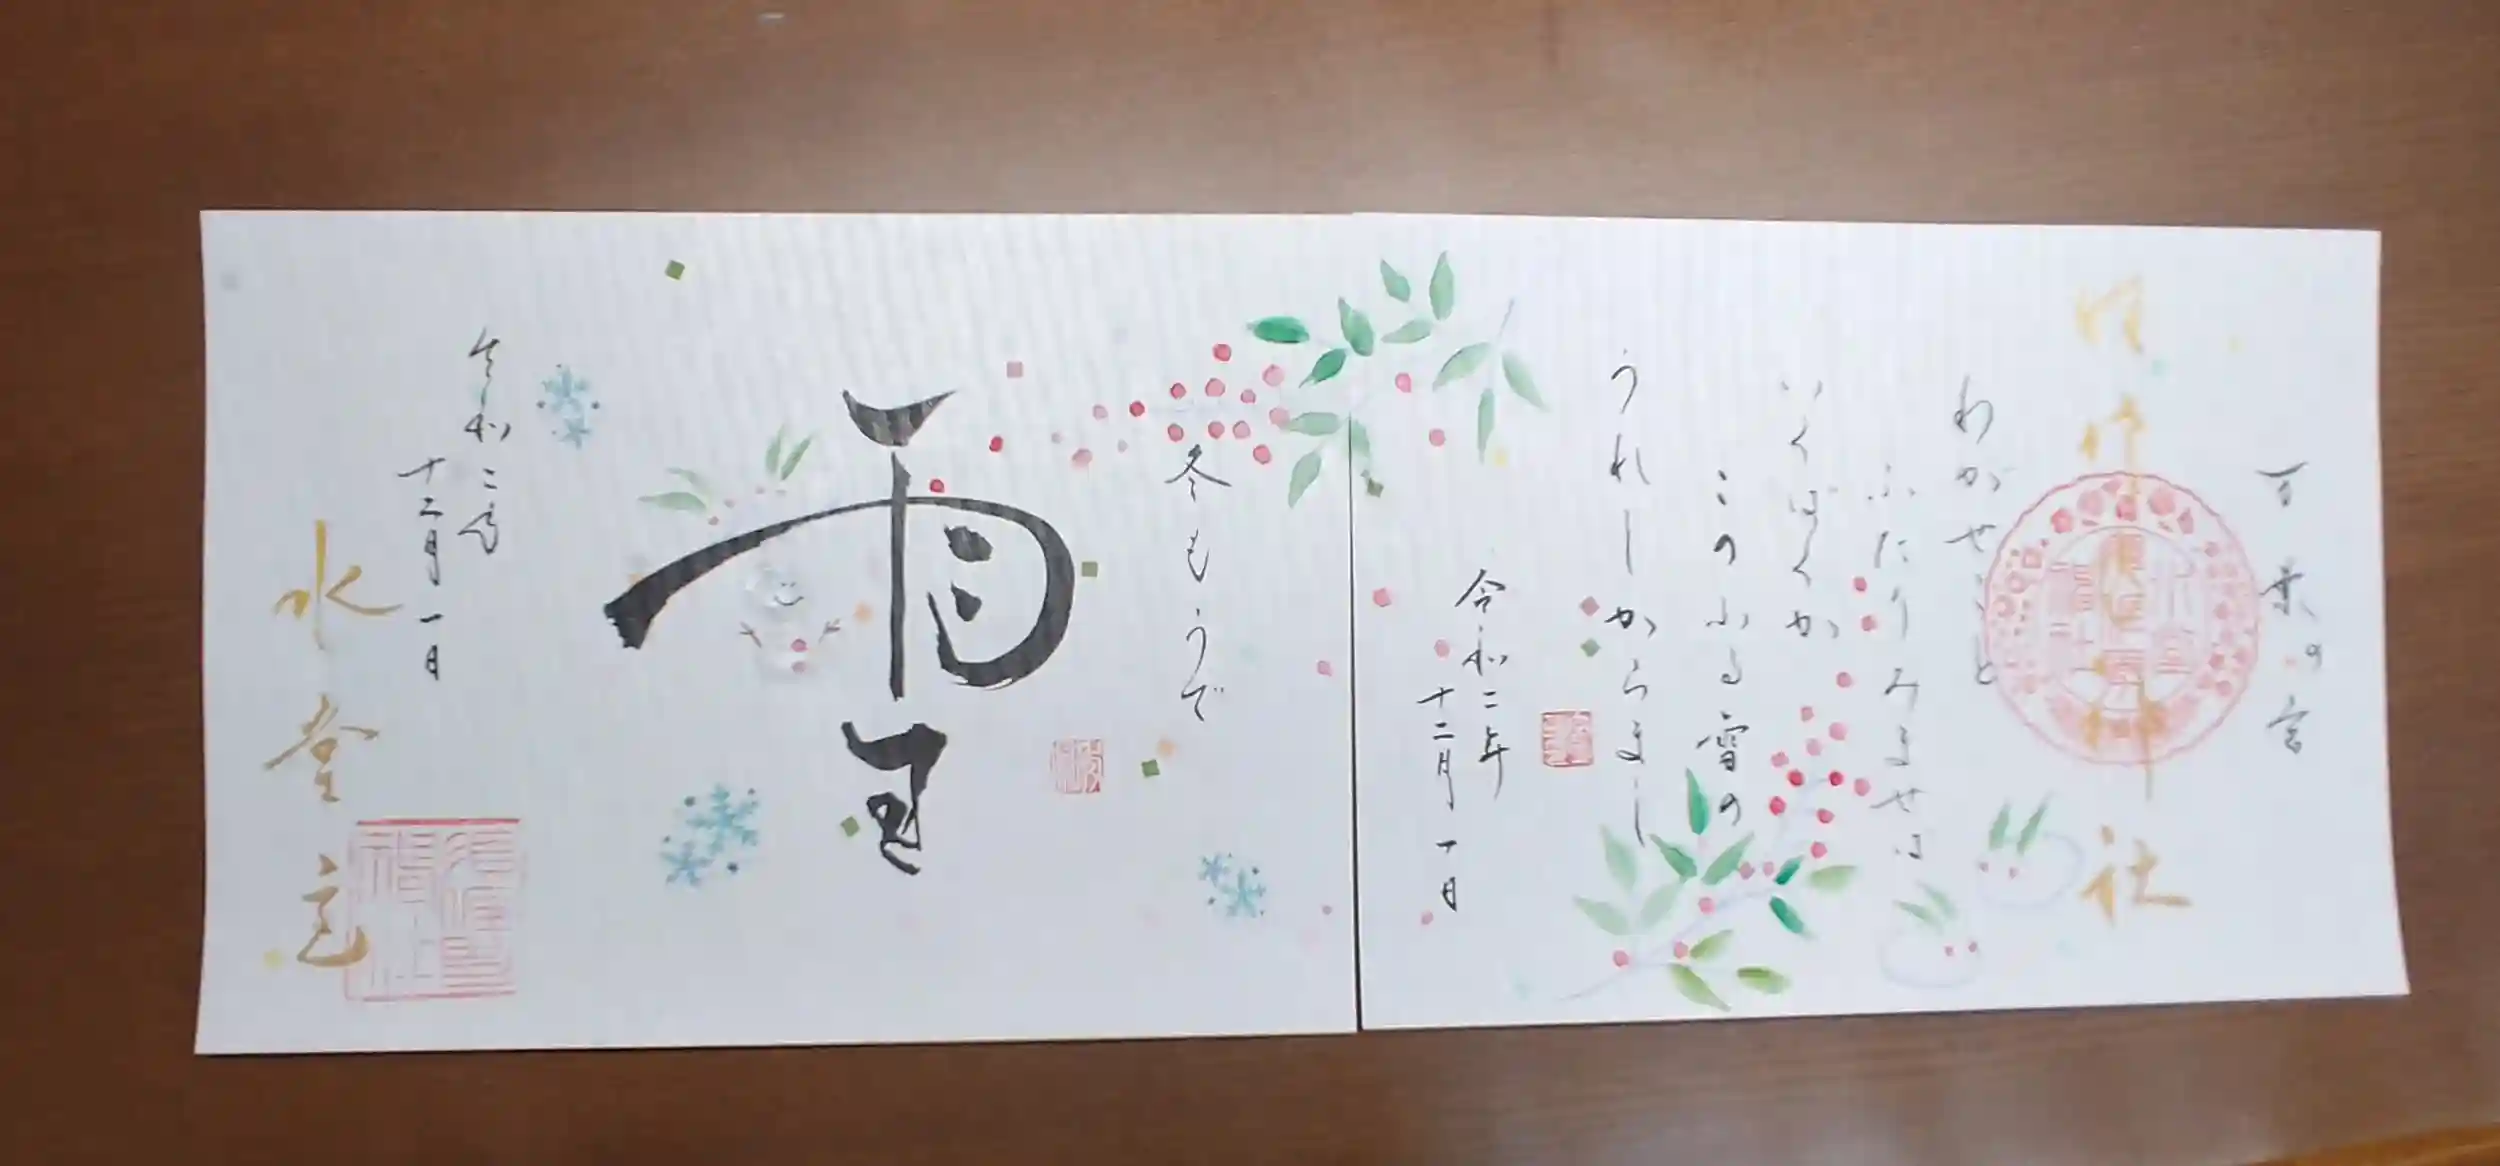 わがせこと
ふたりみませば
いくばくか
このふる雪の
うれしからまし
令和二年
十二月一日
冬もうで
雪
令和二年
十二月一日
水堂